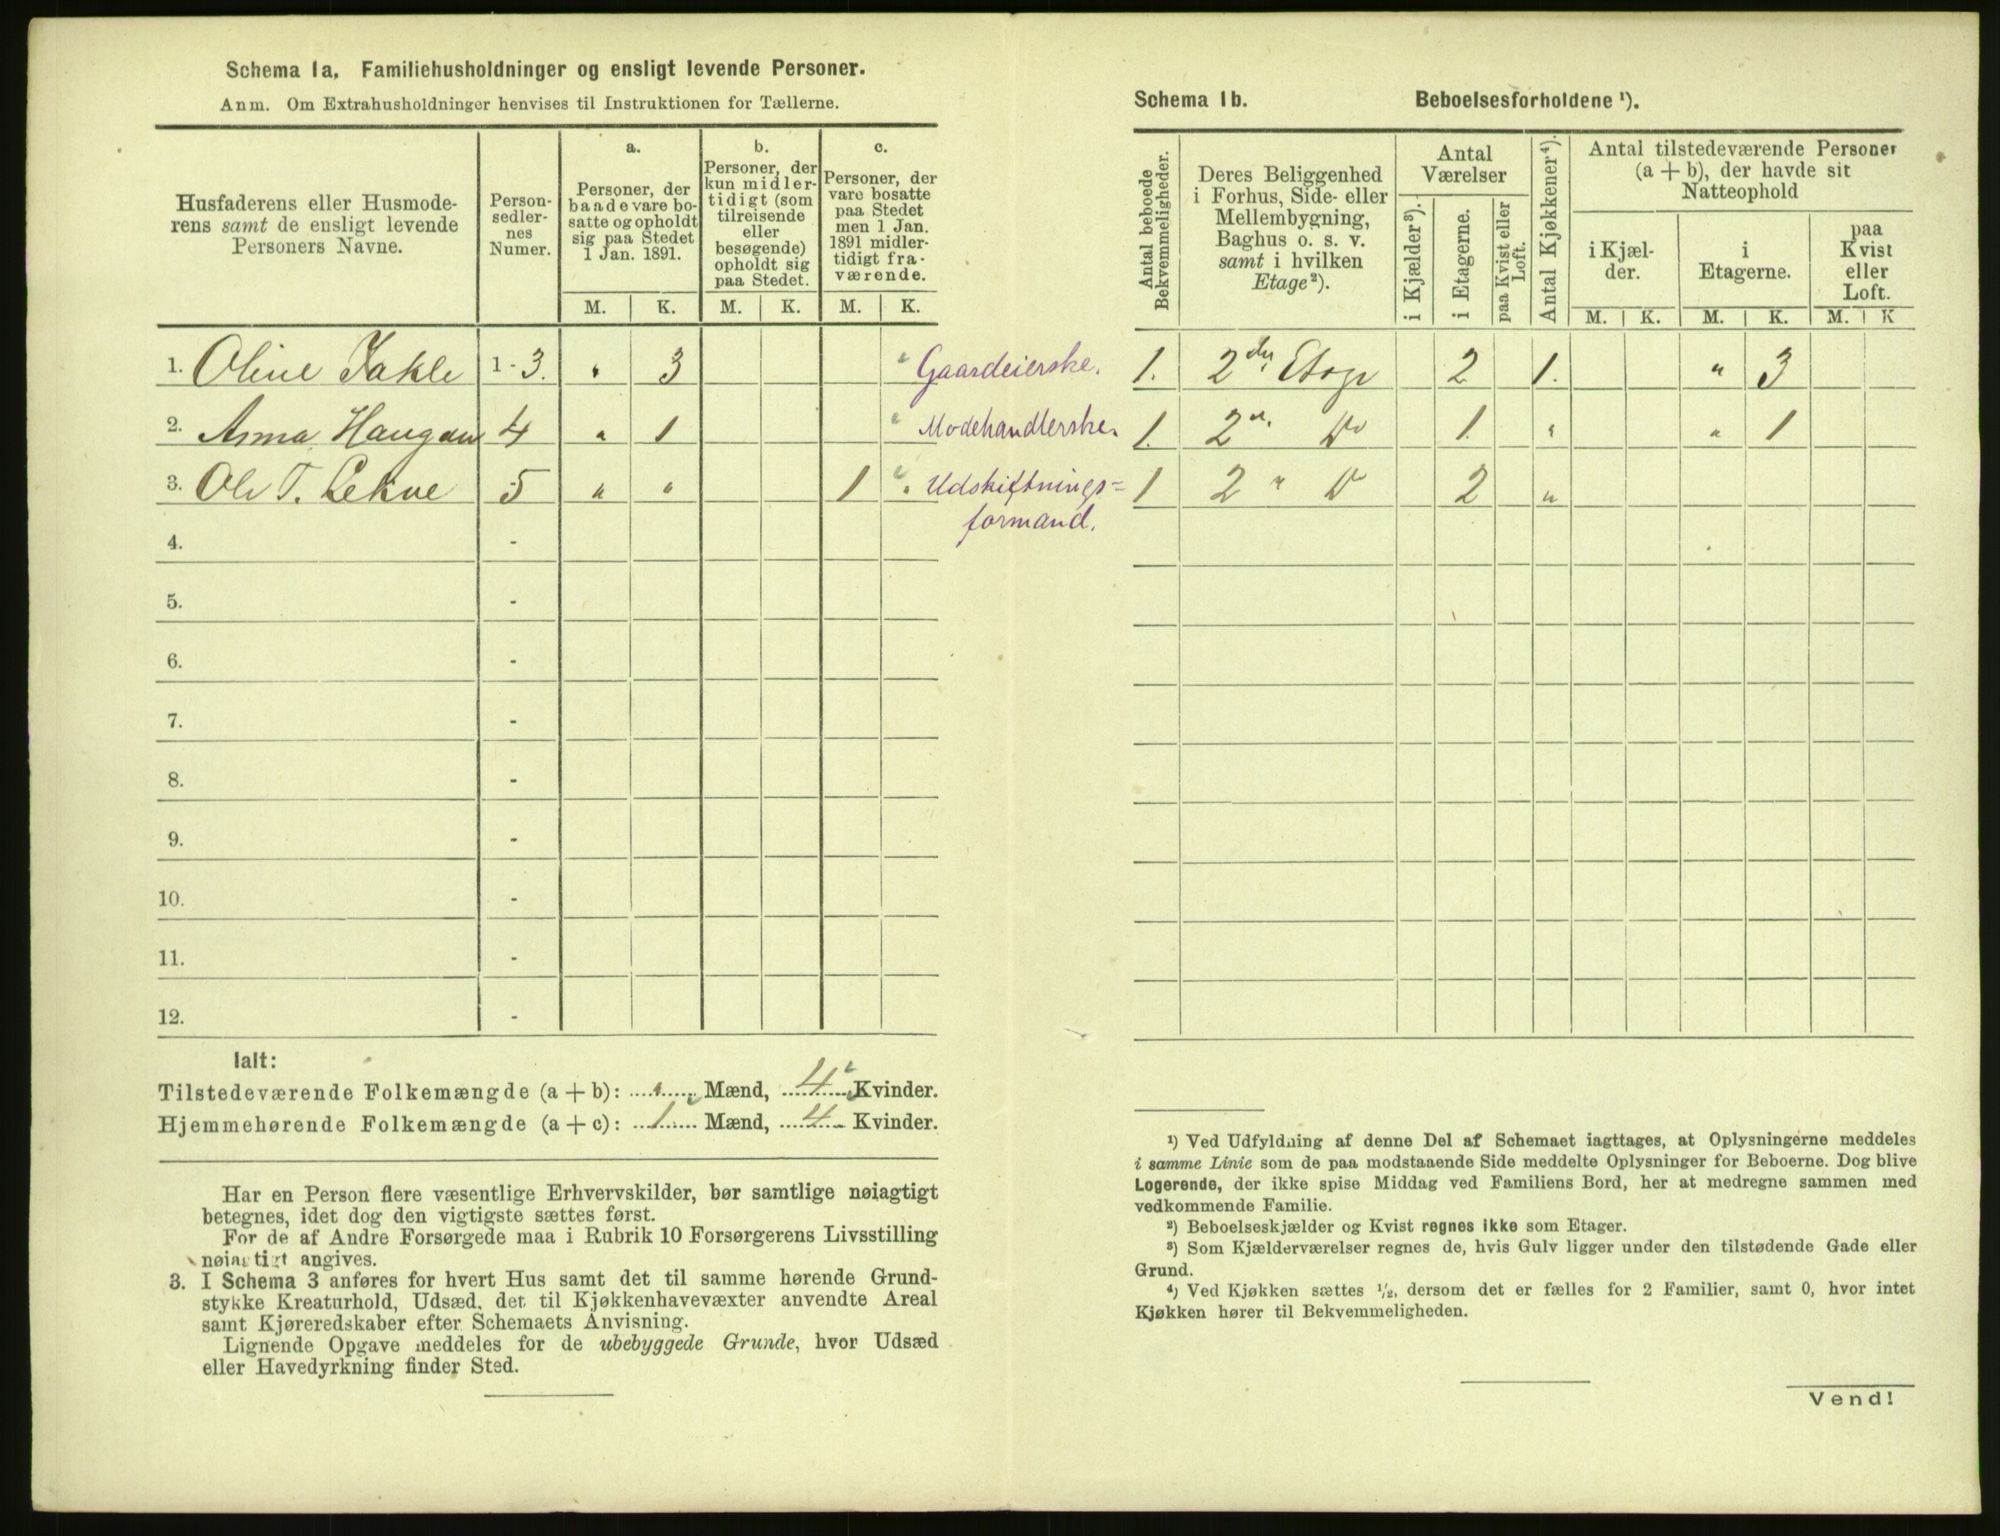 Schema 1a. Familiehusholdninger og ensligt levende Personer.
Anm. Om Extrahusholdninger henvises til Instruktionen for Tællerne.
Husfaderens eller Husmode-
rens samt de ensligt levende
Personers Navne.
Person-
sedler-
nes
Numer.
a.
Personer, der
baade vare bo-
satte og opholdt
sig paa Stedet
1 Jan. 1891.
b.
Personer, der
kun midler-
tidigt (som
tilreisende
eller
besøgende)
opholdt sig
paa Stedet.
c.
Personer, der
vare bosatte
paa Stedet
men 1 Jan.
1891 midler-
tidigt fra-
værende.
M. K. M. K. M. K.
1. Oline Jakle 1-3. " 3 " Gaardeierske.
2. Anna Haugan 4 " 1 " Modehandlerske.
3. Ole T. Lekve 5 " " 1 " Udskiftnings=
formand.
4. -
5. -
6. -
7. -
8. -
9. -
10. -
11. -
12. -
Ialt:
Tilstedeværende Folkemængde (a + b): " Mænd, 4 Kvinder.
Hjemmehørende Folkemængde (a + c): 1 Mænd, 4 Kvinder.
Har en Person flere væsentlige Erhvervskilder, bør samtlige nøiagtigt
betegnes, idet dog den vigtigste sættes først.
For de af Andre Forsørgede maa i Rubrik 10 Forsørgerens Livsstilling
nøiagtigt angives.
3. I Schema 3 anføres for hvert Hus samt det til samme hørende Grund-
stykke Kreaturhold, Udsæd, det til Kjøkkenhavevæxter anvendte Areal
samt Kjøreredskaber efter Schemaets Anvisning.
Lignende Opgave meddeles for de ubebyggede Grunde, hvor Udsæd
eller Havedyrkning finder Sted.
Schema 1b. Beboelsesforholdene ¹).
Antal beboede
Bekvemmeligheder.
Deres Beliggenhed
i Forhus, Side- eller
Mellembygning,
Baghus o. s. v.
samt i hvilken
Etage²).
Antal
Værelser
i Kjælder ³).
i Etagerne.
paa Kvist eller
Loft.
Antal Kjøkkener⁴).
Antal tilstedeværende Personer
(a + b), der havde sit
Natteophold
i Kjæl-
der.
i
Etagerne.
paa
Kvist
eller
Loft.
M. K. M. K. M. K
1. 2den Etage 2 1. " 3
1. 2n. Do 1. " " 1
1 2 " Do 2 "
¹) Ved Udfyldning af denne Del af Schemaet iagttages, at Oplysningerne meddeles
i samme Linie som de paa modstaaende Side meddelte Oplysninger for Beboerne. Dog blive
Logerende, der ikke spise Middag ved Familiens Bord, her at medregne sammen med
vedkommende Familie.
²) Beboelseskjælder og Kvist regnes ikke som Etager.
³) Som Kjælderværelser regnes de, hvis Gulv ligger under den tilstødende Gade eller
Grund.
⁴) Ved Kjøkken sættes ½, dersom det er fælles for 2 Familier, samt 0, hvor intet
Kjøkken hører til Bekvemmeligheden.
Vend!